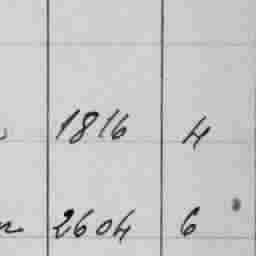 1816 4
2604 6